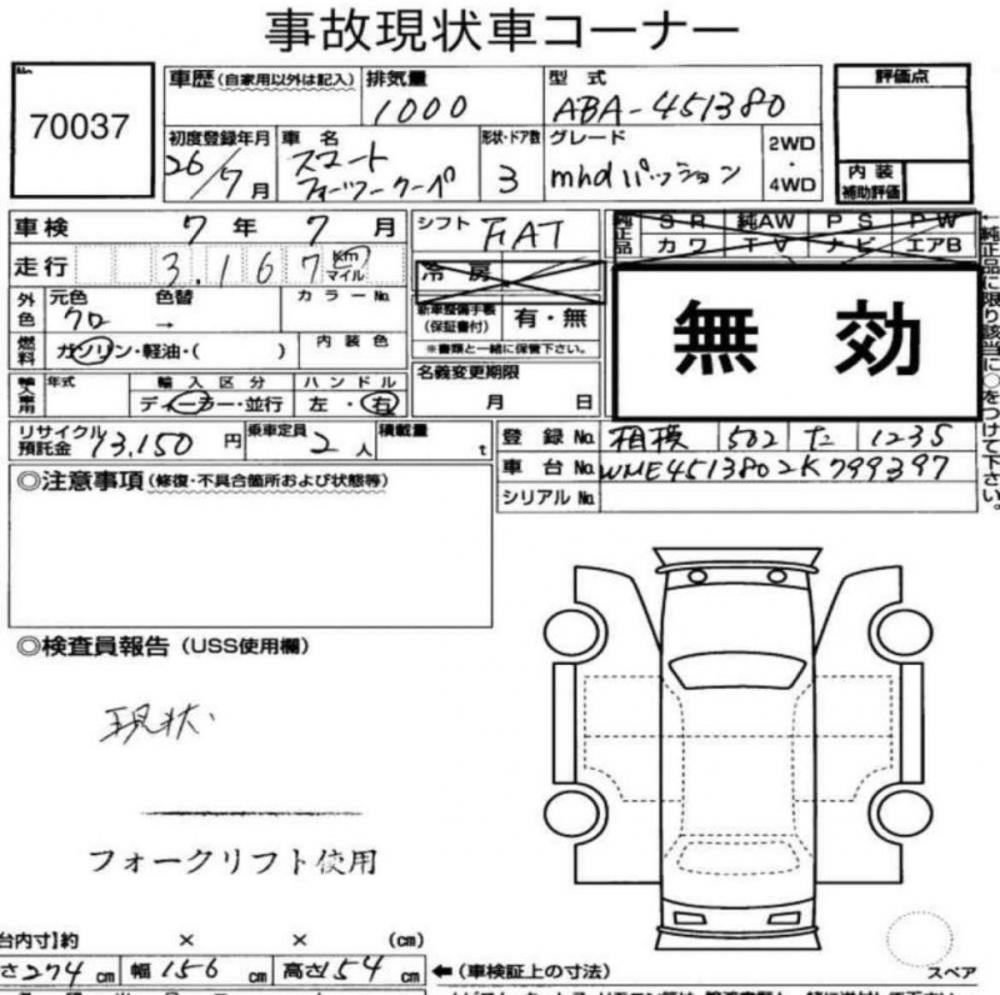 事故現状車コーナー
No.
70037
車歴(自家用以外は記入) 排気量 型 式 評価点
1000 ABA-451380
初度登録年月 車 名 形状・ドア数 グレード 2WD・4WD
26/7月 スマート フォーツークーペ 3 mhdパッション
内 装 補助評価
車検 7 年 7 月 シフト FAT 純正品 SR 純AW PS PW
カワ TV ナビ エアB
走行 3.167 km マイル 冷 房
外色 元色 色替 カラーNo. 新車整備手帳(保証書付) 有・無
クロ → ※書類と一緒に保管下さい。
無 効
燃料 ガソリン・軽油・( ) 内 装 色
名義変更期限
月 日
輸入車用 年式 輸 入 区 分 ハ ン ド ル
ディーラー・並行 左・右
←純正品に限り該当に○をつけて下さい。
リサイクル預託金 13,150 円 乗車定員 2 人 積載量 t
登 録 No. 相模 502 た 1235
車 台 No. WME4513802K799397
シリアル No.
◎注意事項(修復・不具合箇所および状態等)
◎検査員報告(USS使用欄)
現状
フォークリフト使用
台内寸】約 × × (cm)
さ274 cm 幅 156 cm 高さ154 cm ←(車検証上の寸法)
スペア